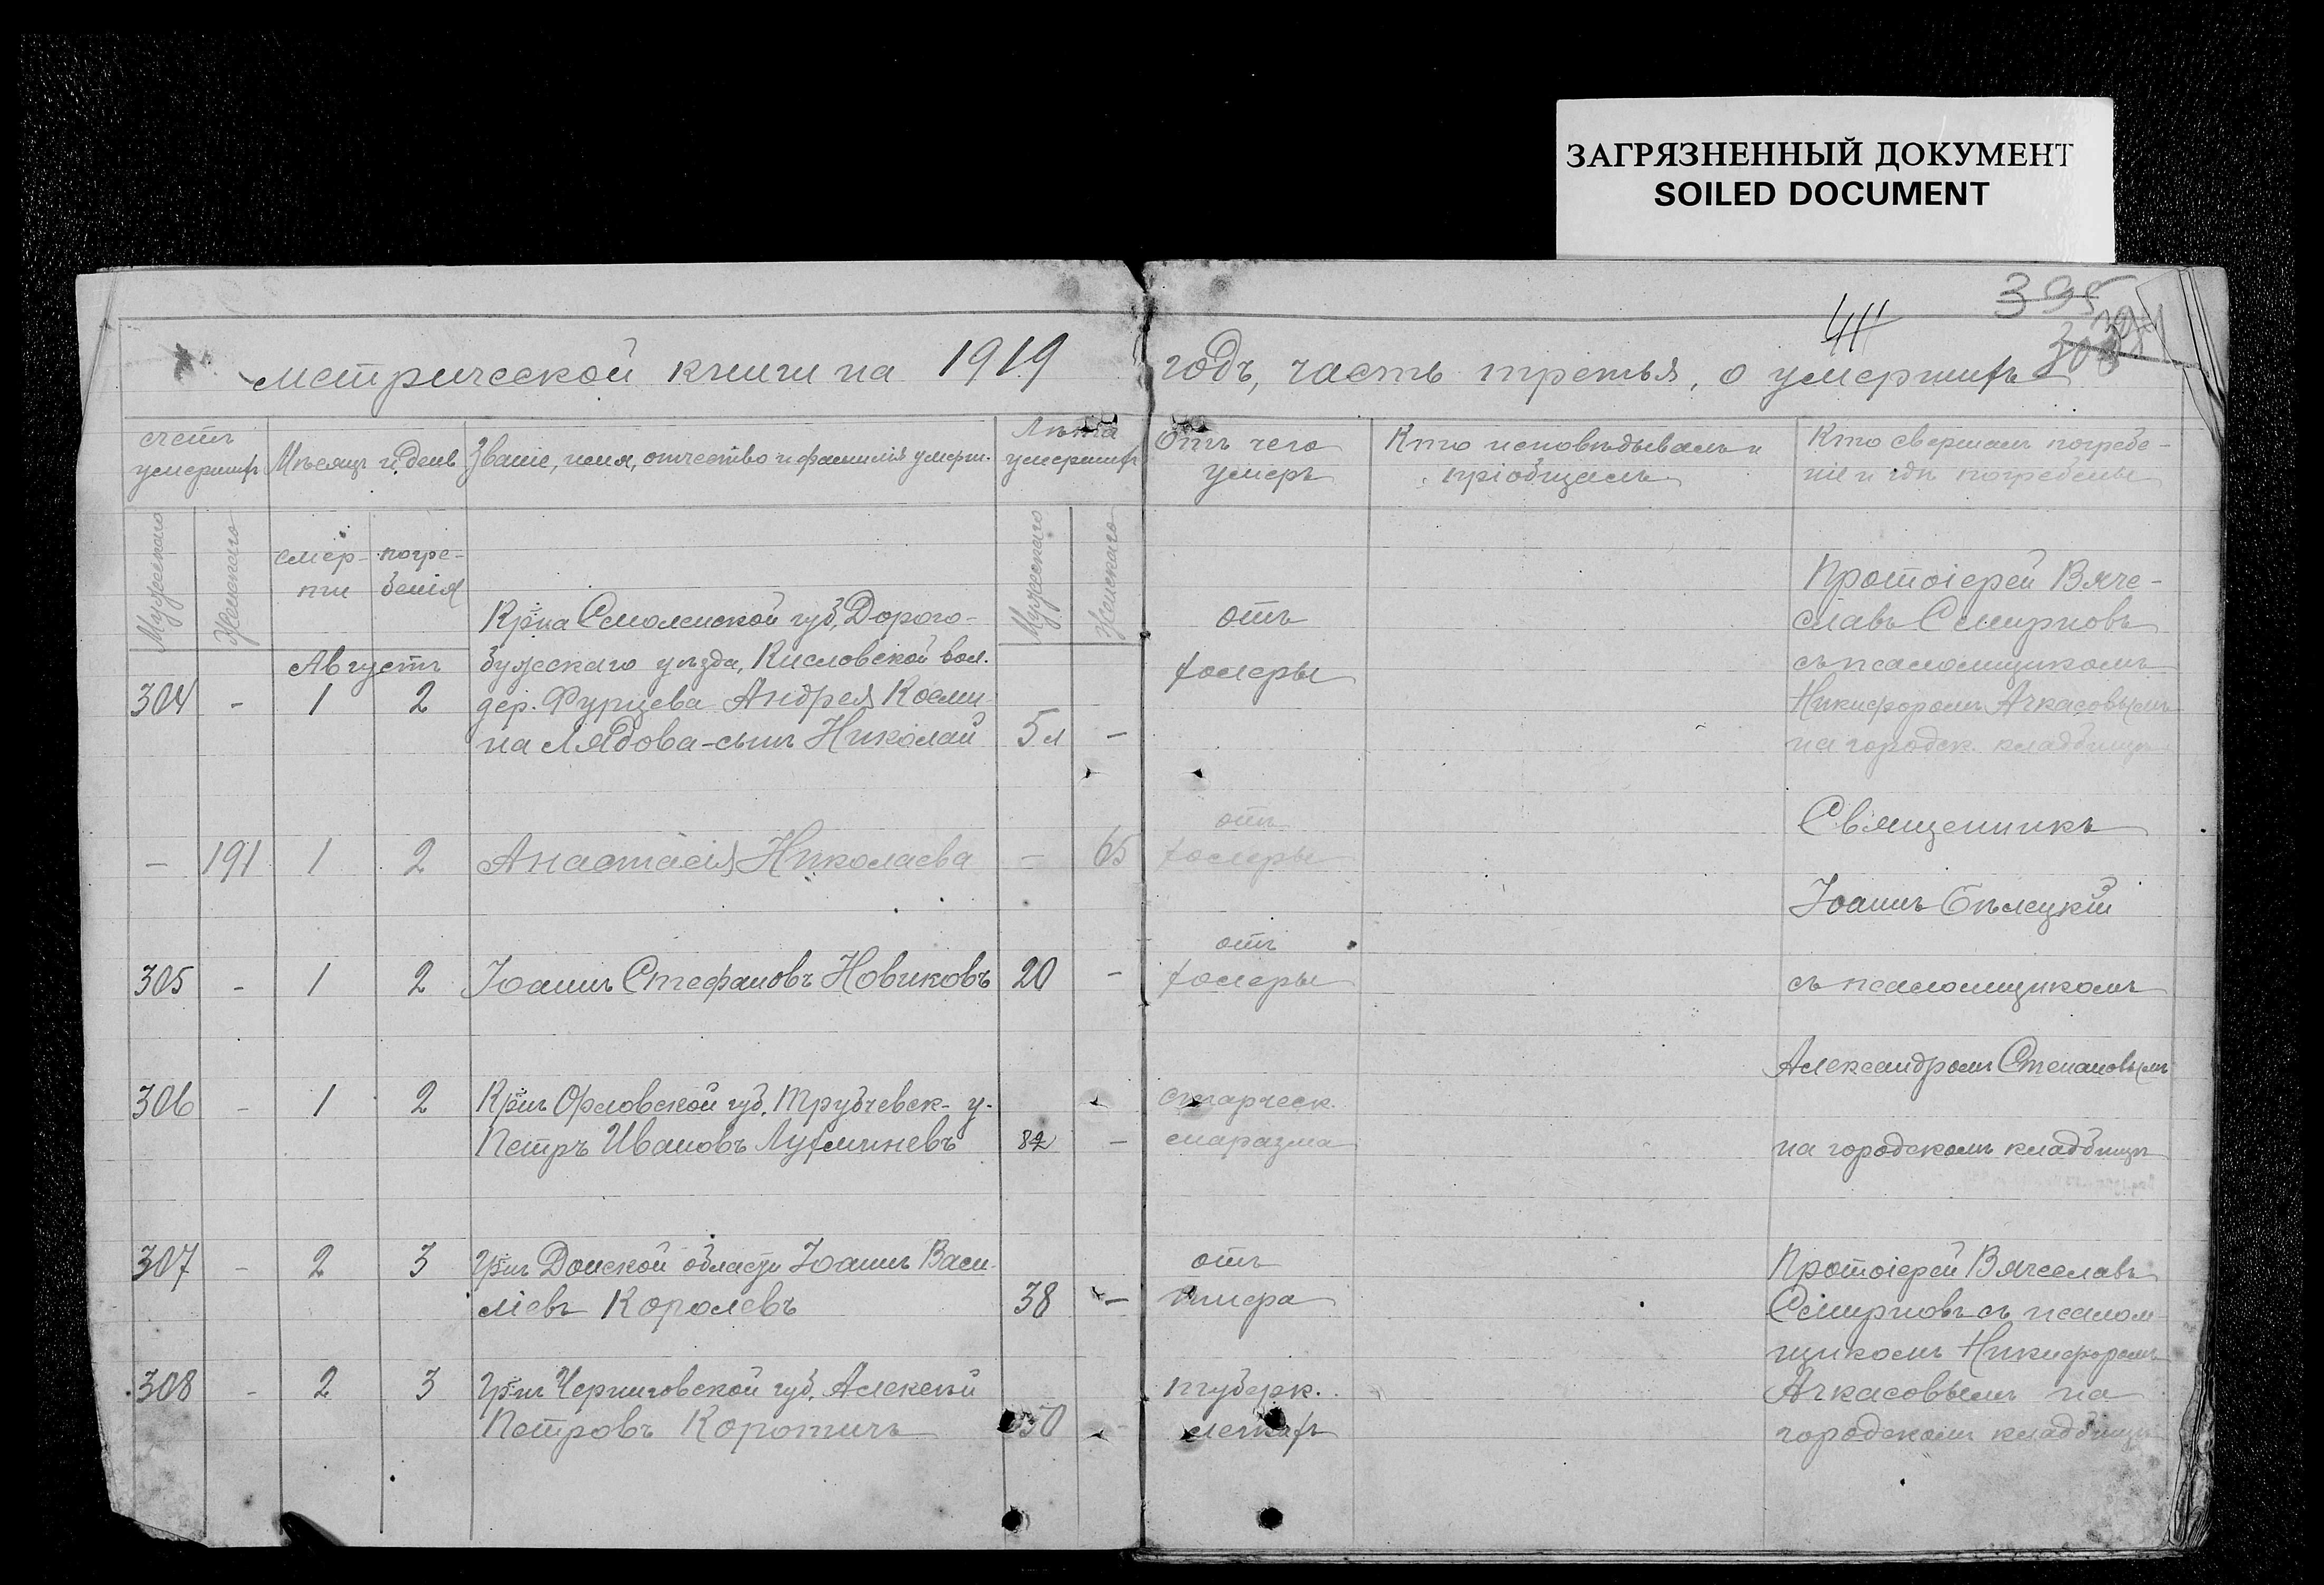 ЗАГРЯЗНЕННЫЙ ДОКУМЕНТ
SOILED DOCUMENT
395
метрической книги на 1919 годъ, часть третья, о умершихъ
счетъ умершихъ
Мѣсяцъ и день
Званіе, имя, отчество и фамилія умерш.
Лѣта умершихъ
Отъ чего умеръ
Кто исповѣдывалъ и пріобщалъ
Кто свершалъ погребеніе и гдѣ погребены
Мужескаго
Женскаго
смерти
погребенія
Мужескаго
Женскаго
Августъ
304 - 1 2
Кр-на Смоленской губ, Дорого-
бужскаго уѣзда, Кисловской вол.
дер. Фурцева Андрея Косми-
на Лядова - сынъ Николай
5 л -
отъ
холеры
Протоіерей Вяче-
славъ Смирновъ
съ псаломщикомъ
Никифоромъ Ачкасовымъ
на городск. кладбищѣ
- 191 1 2 Анастасія Николаева - 65
отъ
холеры
Священникъ
Іоаннъ Бѣлецкій
305 - 1 2 Іоаннъ Стефановъ Новиковъ 20 -
отъ
холеры
съ псаломщикомъ
Александромъ Степановымъ
306 - 1 2 Кр-нъ Орловской губ. Трубчевск- у-
Петръ Ивановъ -
старческ.
маразма
на городскомъ кладбищѣ
307 - 2 3 Гр-нъ Донской области Іоаннъ Васи-
ліевъ Королевъ 38 -
отъ
тифа
Протоіерей Вячеславъ
Смирновъ съ псалом-
щикомъ Никифоромъ
308 - 2 3 Гр-нъ Черниговской губ. Алексѣй
Петровъ Коротичъ 50 -
туберк.
легкихъ
Ачкасовымъ на
городскомъ кладбищѣ